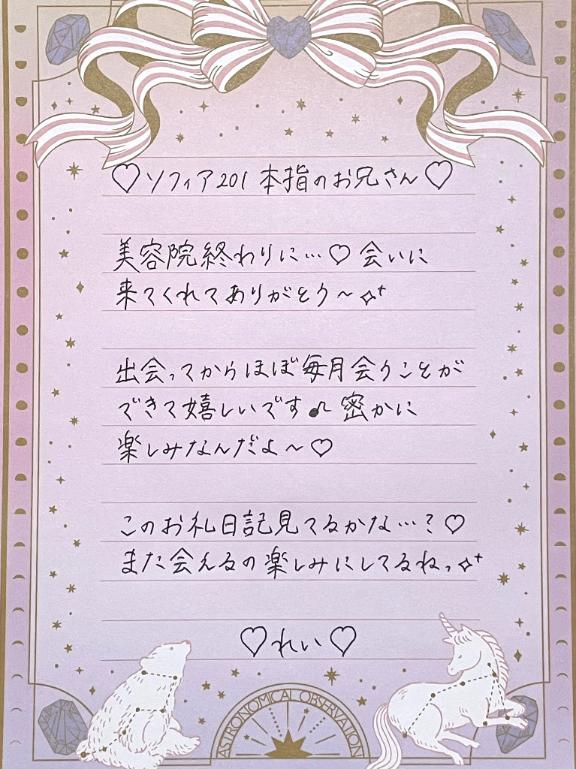 ♡ソフィア201 本指のお兄さん♡
美容院終わりに…♡会いに
来てくれてありがとう〜✧⁺
出会ってからほぼ毎月会うことが
できて嬉しいです♪密かに
楽しみなんだよ〜♡
このお礼日記見てるかな…?♡
また会えるの楽しみにしてるねっ✧⁺
♡れい♡
ASTRONOMICAL OBSERVATION